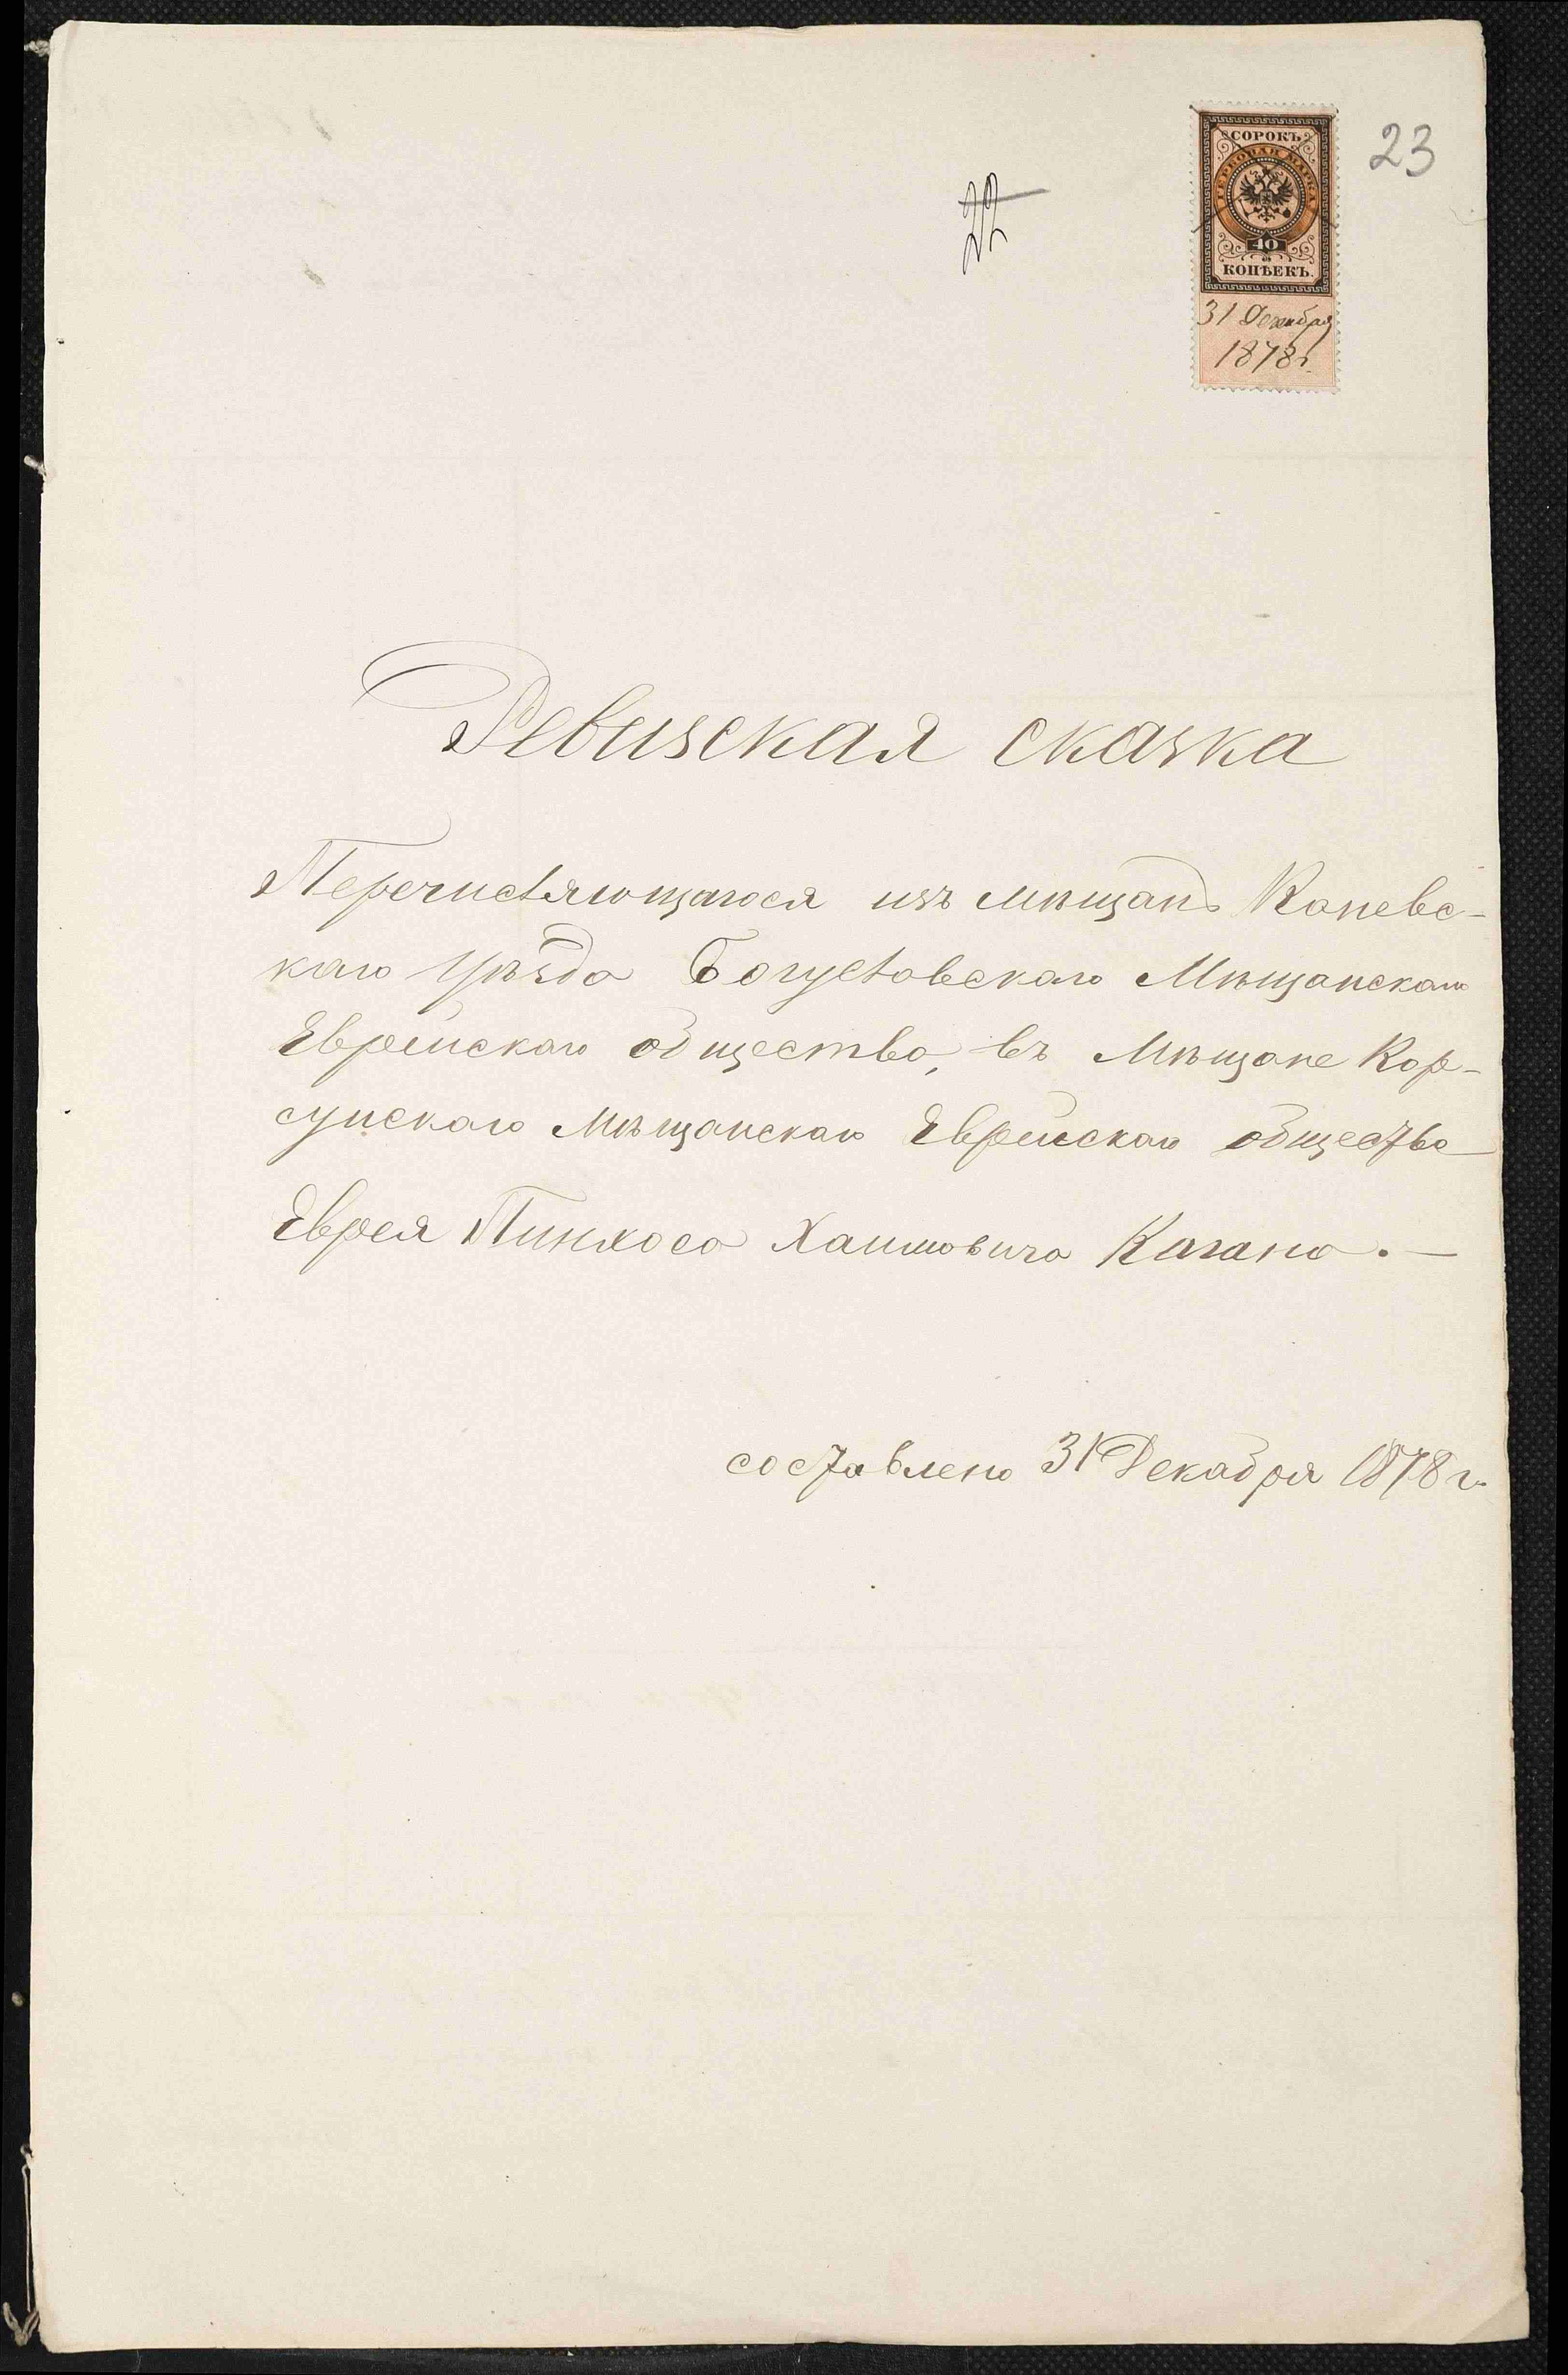 23
22
СОРОКЪ
ГЕРБОВАЯ МАРКА
40
КОПѢЕКЪ.
31 Декабря
1878 г.
Ревизская сказка
Перечисляющагося изъ мѣщанъ Каневс-
каго уѣзда Богуславскаго Мѣщанскаго
Еврейскаго общества, въ Мѣщане Кор-
сунскаго Мѣщанскаго Еврейскаго общества
Еврея Пинхоса Хаимовича Кагана. —
составлено 31 Декабря 1878 г.